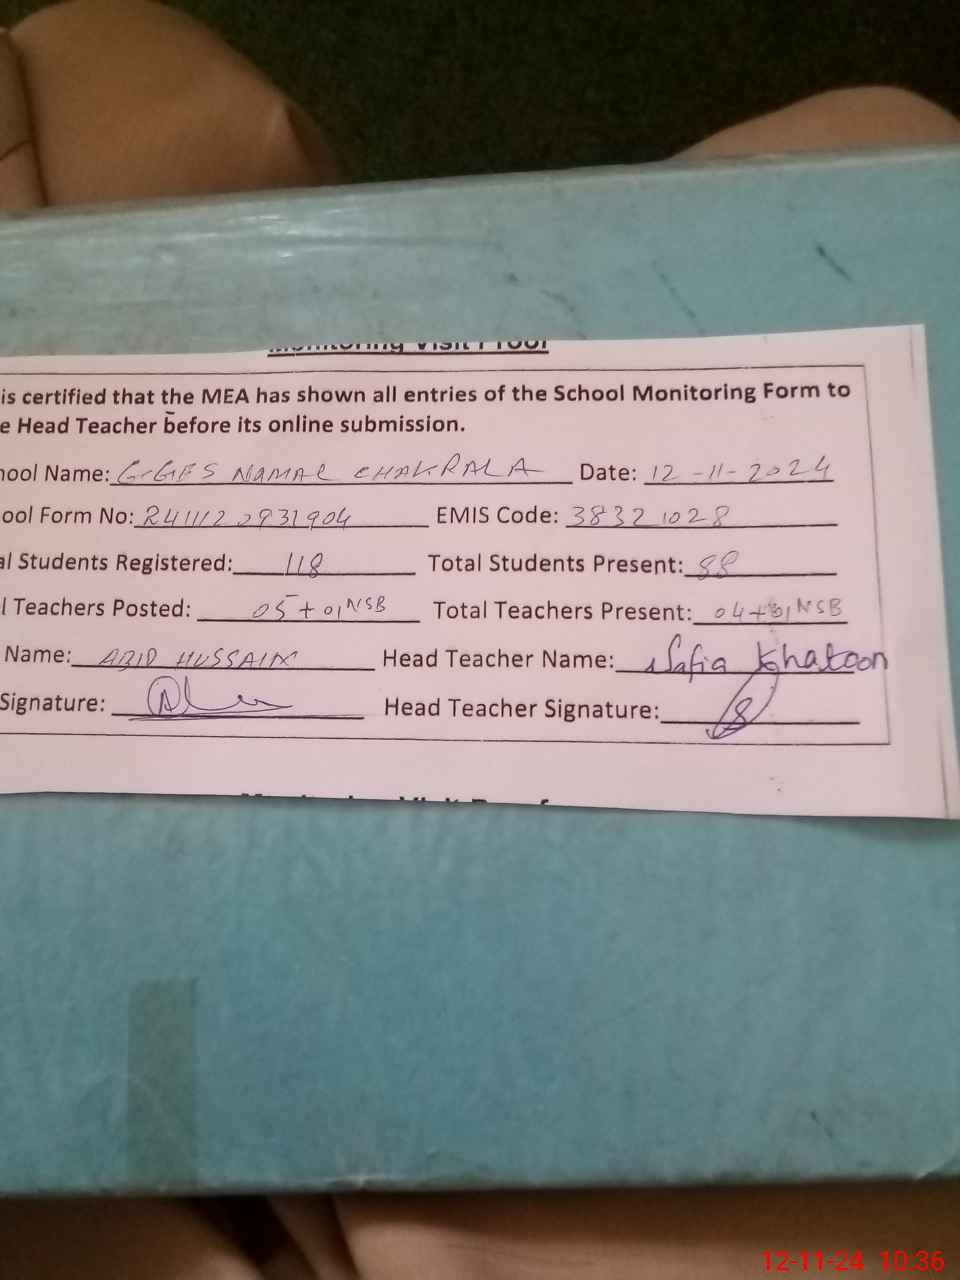 Monitoring Visit Proof
is certified that the MEA has shown all entries of the School Monitoring Form to
e Head Teacher before its online submission.
hool Name: GGES NAMAL CHAKRALA Date: 12-11-2024
ool Form No: R411120931904 EMIS Code: 38321028
al Students Registered: 118 Total Students Present: 88
l Teachers Posted: 05+01 NSB Total Teachers Present: 04+01 NSB
Name: ABID HUSSAIN Head Teacher Name: Safia Khatoon
Signature: Head Teacher Signature:
Monitoring Visit Proof
12-11-24 10:36